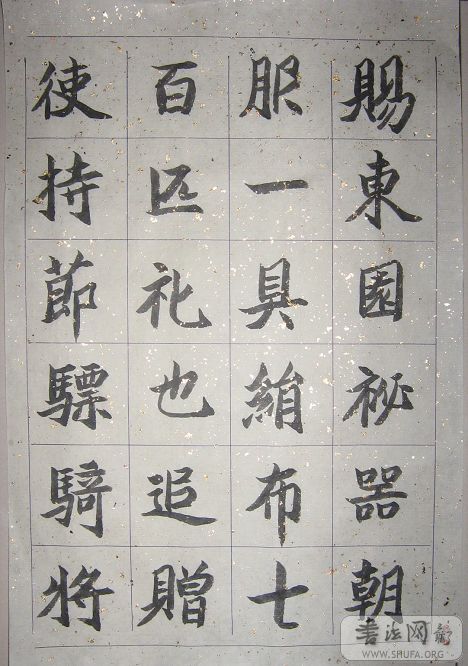 賜東園祕器朝
服一具絹布七
百匹礼也追贈
使持節驃騎將
書法网
WWW.SHUFA.ORG